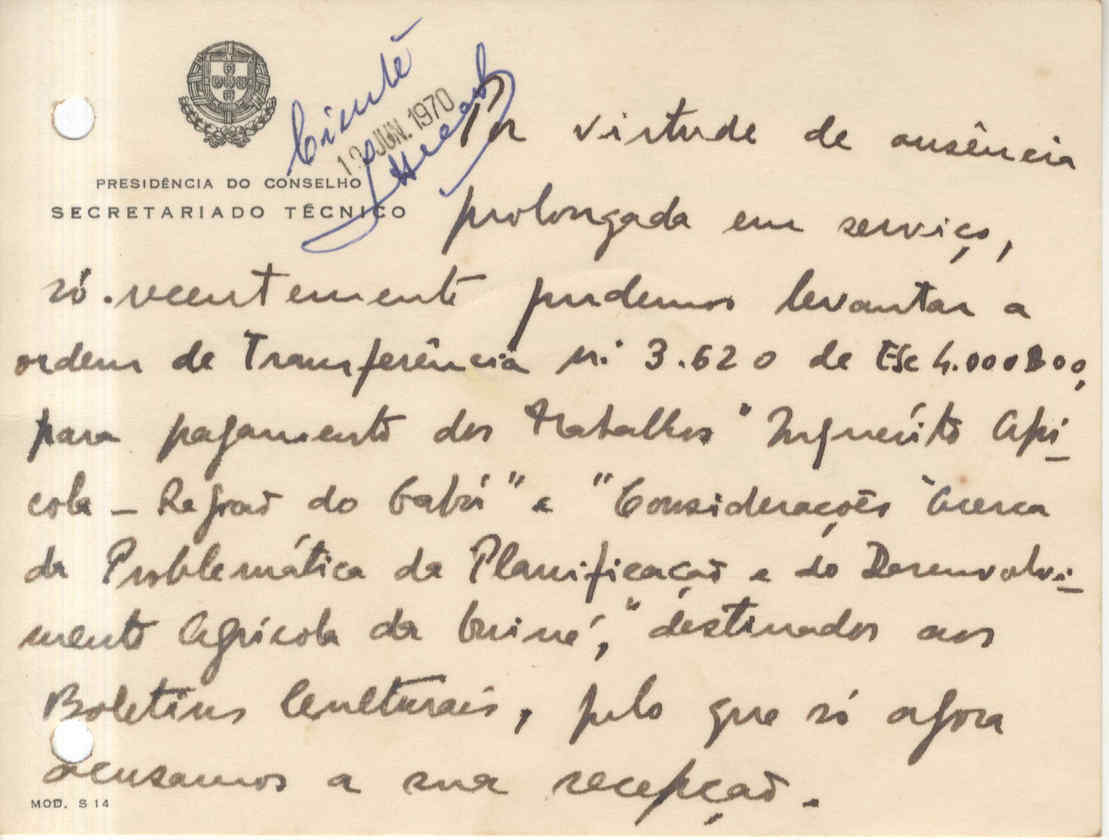 Ciente
12 JUN. 1970
PRESIDÊNCIA DO CONSELHO
SECRETARIADO TÉCNICO
Por virtude de ausência
prolongada em serviço,
só recentemente pudemos levantar a
ordem de Transferência n.º 3.620 de Esc 4.000$00,
para pagamento dos trabalhos "Inquérito Apí-
cola - Região do Gabú" e "Considerações Acerca
da Problemática da Planificação e do Desenvolvi-
mento Agrícola da Guiné," destinados aos
Boletins Culturais, pelo que só agora
acusamos a sua recepção.
MOD. S 14